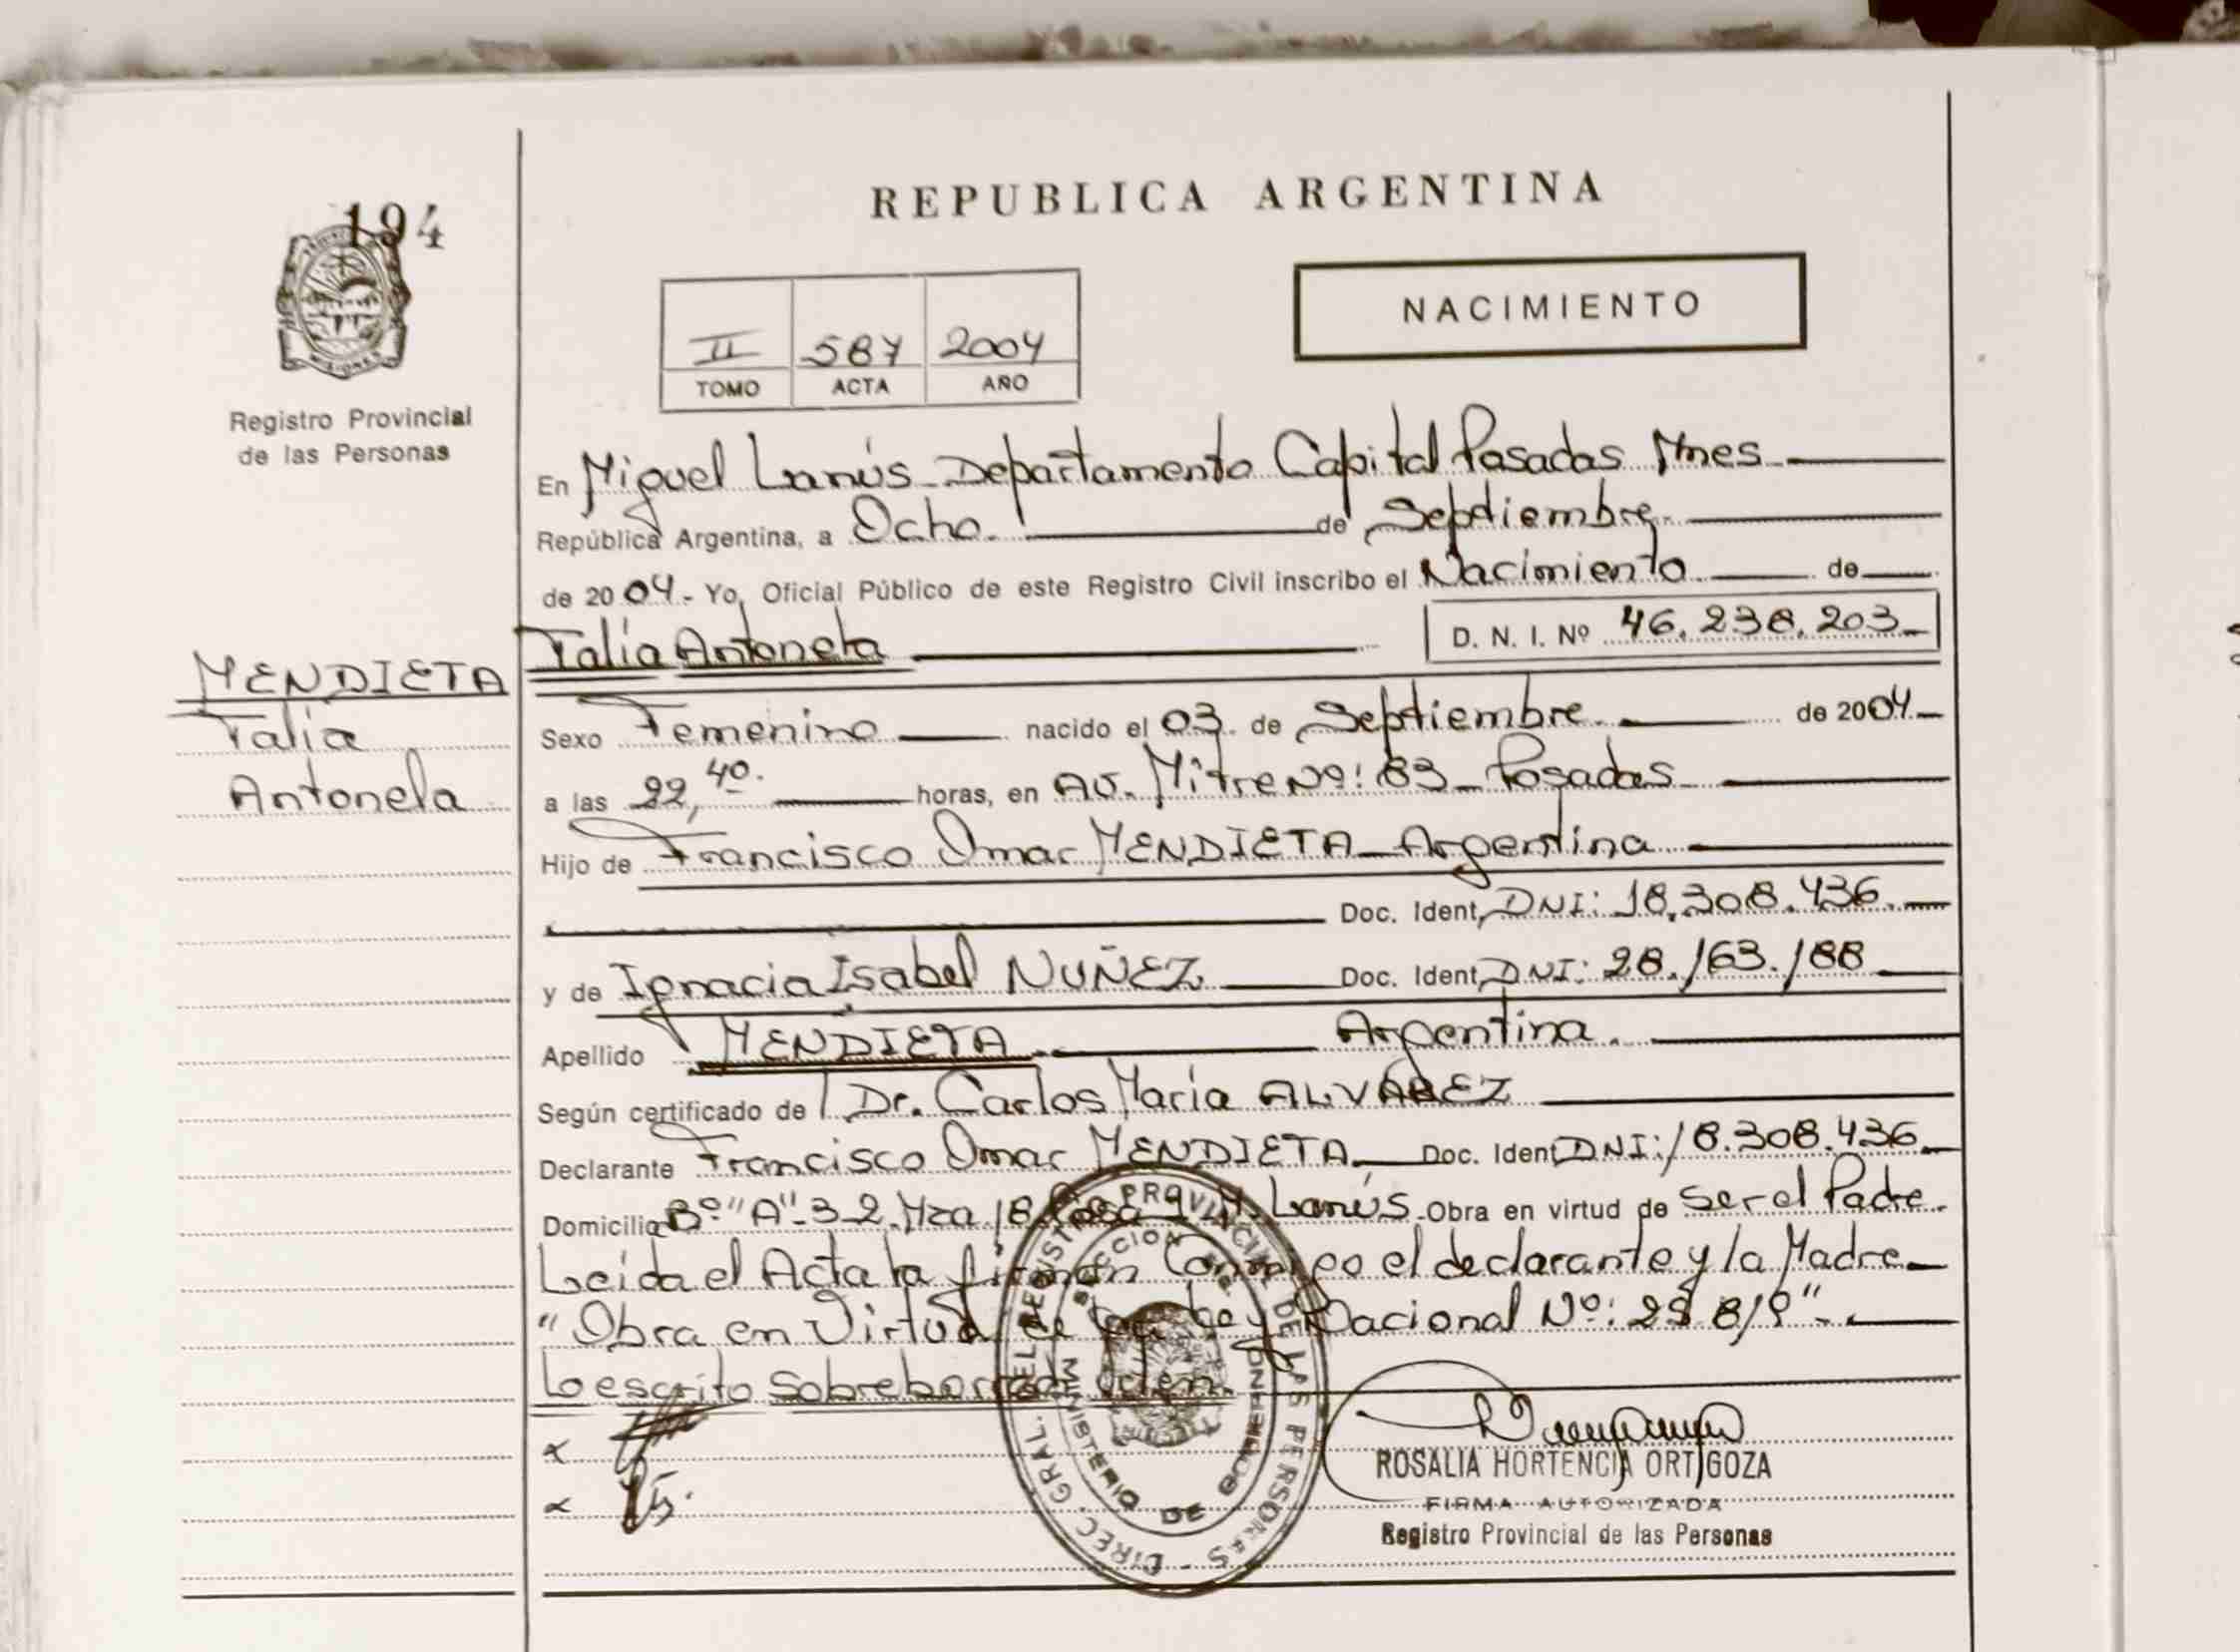 194
REPUBLICA ARGENTINA
NACIMIENTO
II 587 2004
TOMO ACTA AÑO
MISIONES
Registro Provincial
de las Personas
En Miguel Lanús Departamento Capital Posadas Mnes
República Argentina, a Ocho. de Septiembre.
de 2004.- Yo, Oficial Público de este Registro Civil inscribo el Nacimiento de
Talia Antonela D. N. I. Nº 46.238.203
MENDIETA
Talia
Antonela
Sexo Femenino nacido el 03. de Septiembre. de 2004.
a las 22,40. horas, en AV. Mitre Nº: 83 Posadas
Hijo de Francisco Omar MENDIETA Argentina
Doc. Ident. DNI: 18.308.436.
y de Ignacia Isabel NUÑEZ Doc. Ident. DNI: 28.163.188
Apellido MENDIETA Argentina.
Según certificado de Dr. Carlos María ALVAREZ
Declarante Francisco Omar MENDIETA. Doc. Ident. DNI: 18.308.436
Domicilio Bº "A"-3-2 Mza 18 Casa M. Lanús. Obra en virtud de Ser el Padre.
Leída el Acta la firman Conmigo el declarante y la Madre
"Obra en Virtud de la Ley Nacional Nº:
Lo escrito Sobreborrado
DIREC. GRAL. DEL REGISTRO PROVINCIAL DE LAS PERSONAS
MINISTERIO DE GOBIERNO
ROSALIA HORTENCIA ORTIGOZA
FIRMA AUTORIZADA
Registro Provincial de las Personas